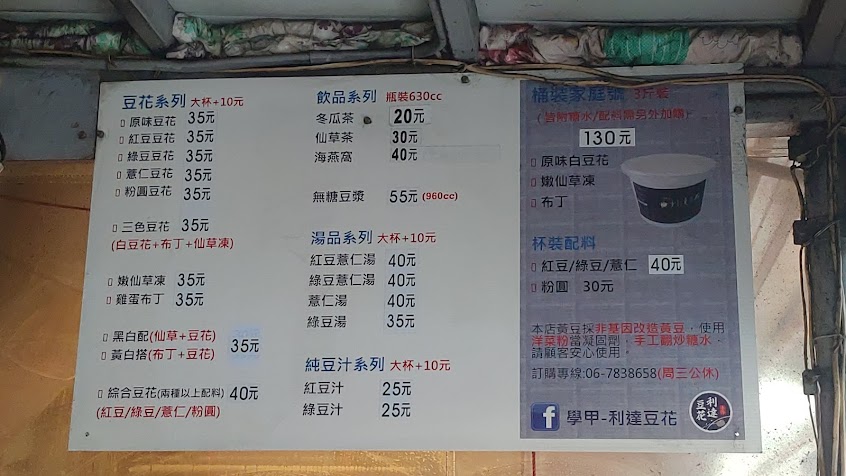 豆花系列 大杯+10元
原味豆花 35元
紅豆豆花 35元
綠豆豆花 35元
薏仁豆花 35元
粉圓豆花 35元
三色豆花 35元
(白豆花+布丁+仙草凍)
嫩仙草凍 35元
雞蛋布丁 35元
黑白配(仙草+豆花)
黃白搭(布丁+豆花) 35元
綜合豆花(兩種以上配料) 40元
(紅豆/綠豆/薏仁/粉圓)
飲品系列 瓶裝630cc
冬瓜茶 20元
仙草茶 30元
海燕窩 40元
無糖豆漿 55元 (960cc)
湯品系列 大杯+10元
紅豆薏仁湯 40元
綠豆薏仁湯 40元
薏仁湯 40元
綠豆湯 35元
純豆汁系列 大杯+10元
紅豆汁 25元
綠豆汁 25元
桶裝家庭號 3斤裝
(皆附糖水/配料需另外加購)
130元
原味白豆花
嫩仙草凍
布丁
杯裝配料
紅豆/綠豆/薏仁 40元
粉圓 30元
本店黃豆採非基因改造黃豆，使用
洋菜粉當凝固劑，手工翻炒糖水，
請顧客安心使用。
訂購專線:06-7838658(周三公休)
f 學甲-利達豆花
利達
豆花